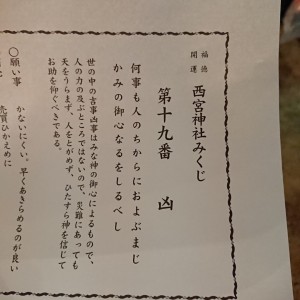 福徳
開運
西宮神社みくじ
第十九番 凶
何事も人のちからにおよぶまじ
かみの御心なるをしるべし
世の中の吉事凶事はみな神の御心によるもので、
人の力の及ぶところではないので、災難にあっても
天をうらまず、人をとがめず、ひたすら神を信じて
お助を仰ぐべきである。
〇願い事 かないにくい。早くあきらめるのが良い
売買ひかえめに